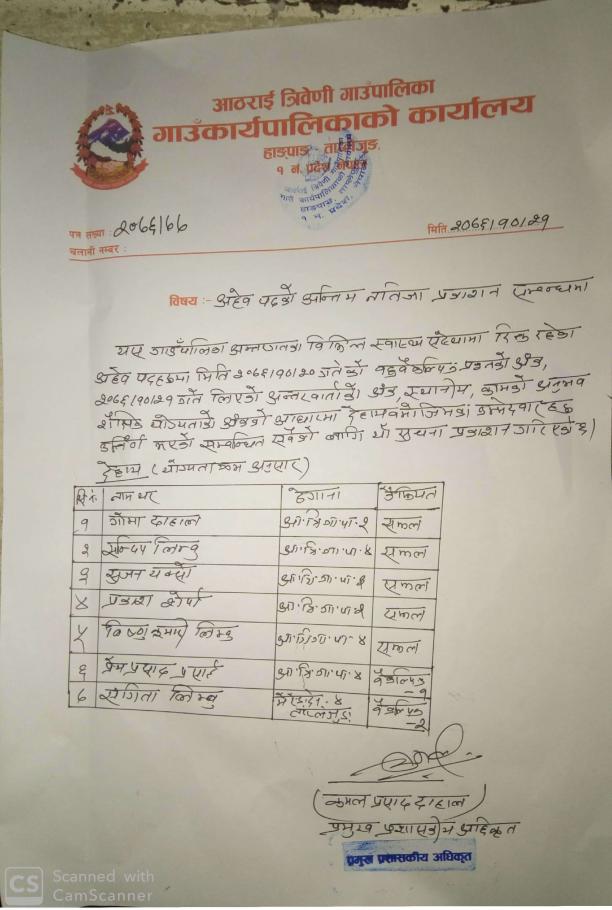 आठराई त्रिवेणी गाउँपालिका
गाउँकार्यपालिकाको कार्यालय
हाङपाङ, ताप्लेजुङ
१ नं. प्रदेश नेपाल
पत्र संख्या : २०७६/७७
मिति २०७६/१०/२१
चलानी नम्बर :
विषय :- अहेव पदको अन्तिम नतिजा प्रकाशन सम्बन्धमा
यस गाउँपालिका अन्तर्गतका विभिन्न स्वास्थ्य संस्थामा रिक्त रहेका
अहेव पदहरुमा मिति २०७६/१०/२० गतेको वहुवैकल्पिक प्रश्नको अंक,
२०७६/१०/२१ गते लिएको अन्तरवार्ताको अंक, स्थानीय, कामको अनुभव
शैक्षिक योग्यताको अंकको आधारमा देहायबमोजिमका उम्मेदवार हरु
उत्तिर्ण भएको सम्बन्धित सबैको लागि यो सूचना प्रकाशन गरिएको छ।
देहाय (योग्यताक्रम अनुसार)
सि.नं. नाम थर ठेगाना कैफियत
१ गोमा दाहाल आ.त्रि.गा.पा. २ सफल
२ सन्दिप लिम्बु आ.त्रि.गा.पा. ४ सफल
३ सुजन यक्सो आ.त्रि.गा.पा. सफल
४ प्रकाश शेर्पा आ.त्रि.गा.पा. सफल
५ विष्णु कुमारी लिम्बु आ.त्रि.गा.पा. ४ सफल
६ प्रेम प्रसाद आ.त्रि.गा.पा. ४ वैकल्पिक -१
७ संगिता लिम्बु ४ ताप्लेजुङ वैकल्पिक -२
(कमल प्रसाद दाहाल)
प्रमुख प्रशासकीय अधिकृत
प्रमुख प्रशासकीय अधिकृत
CS Scanned with
CamScanner